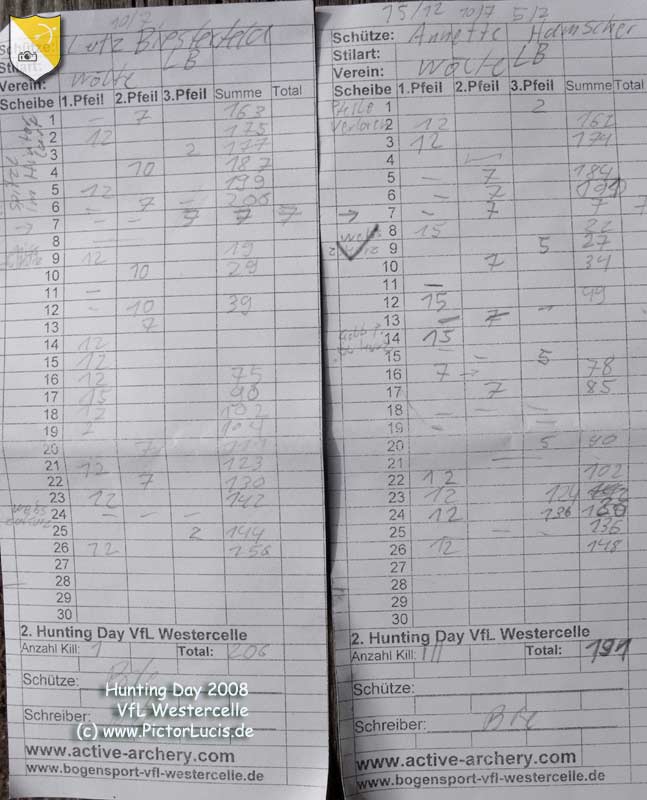 10/7
Schütze: Lutz Biesterfeld
Stilart: LB
Verein: Wölfe
Scheibe 1.Pfeil 2.Pfeil 3.Pfeil Summe Total
1 – 7 163
2 12 175
3 2 177
4 10 187
5 12 199
6 – 7 – 206
7 – – 7 7 7
8 –
9 12 19
10 10 29
11 –
12 – 10 39
13 7
14 12
15 12
16 12 75
17 15 90
18 12 102
19 2 104
20 7 111
21 12 123
22 7 130
23 12 142
24 – – –
25 2 144
26 12 156
27
28
29
30
2. Hunting Day VfL Westercelle
Anzahl Kill: 1 Total: 206
Schütze:
Schreiber:
www.active-archery.com
www.bogensport-vfl-westercelle.de
Hunting Day 2008
VfL Westercelle
(c) www.PictorLucis.de
15/12 10/7 5/2
Schütze: Annette
Stilart: LB
Verein: Wölfe
Scheibe 1.Pfeil 2.Pfeil 3.Pfeil Summe Total
1 2
2 12 162
3 12 174
4 –
5 – 7 184
6 – 7 191
7 – 7 7 7
8 15 22
9 5 27
10 7 34
11 –
12 15 49
13 – 7 –
14 15
15 – – 5
16 7 78
17 7 85
18 – – –
19 – –
20 5 90
21 – –
22 12 102
23 12 124
24 12 136
25 – – 136
26 12 148
27
28
29
30
2. Hunting Day VfL Westercelle
Anzahl Kill: III Total: 191
Schütze:
Schreiber:
www.active-archery.com
www.bogensport-vfl-westercelle.de